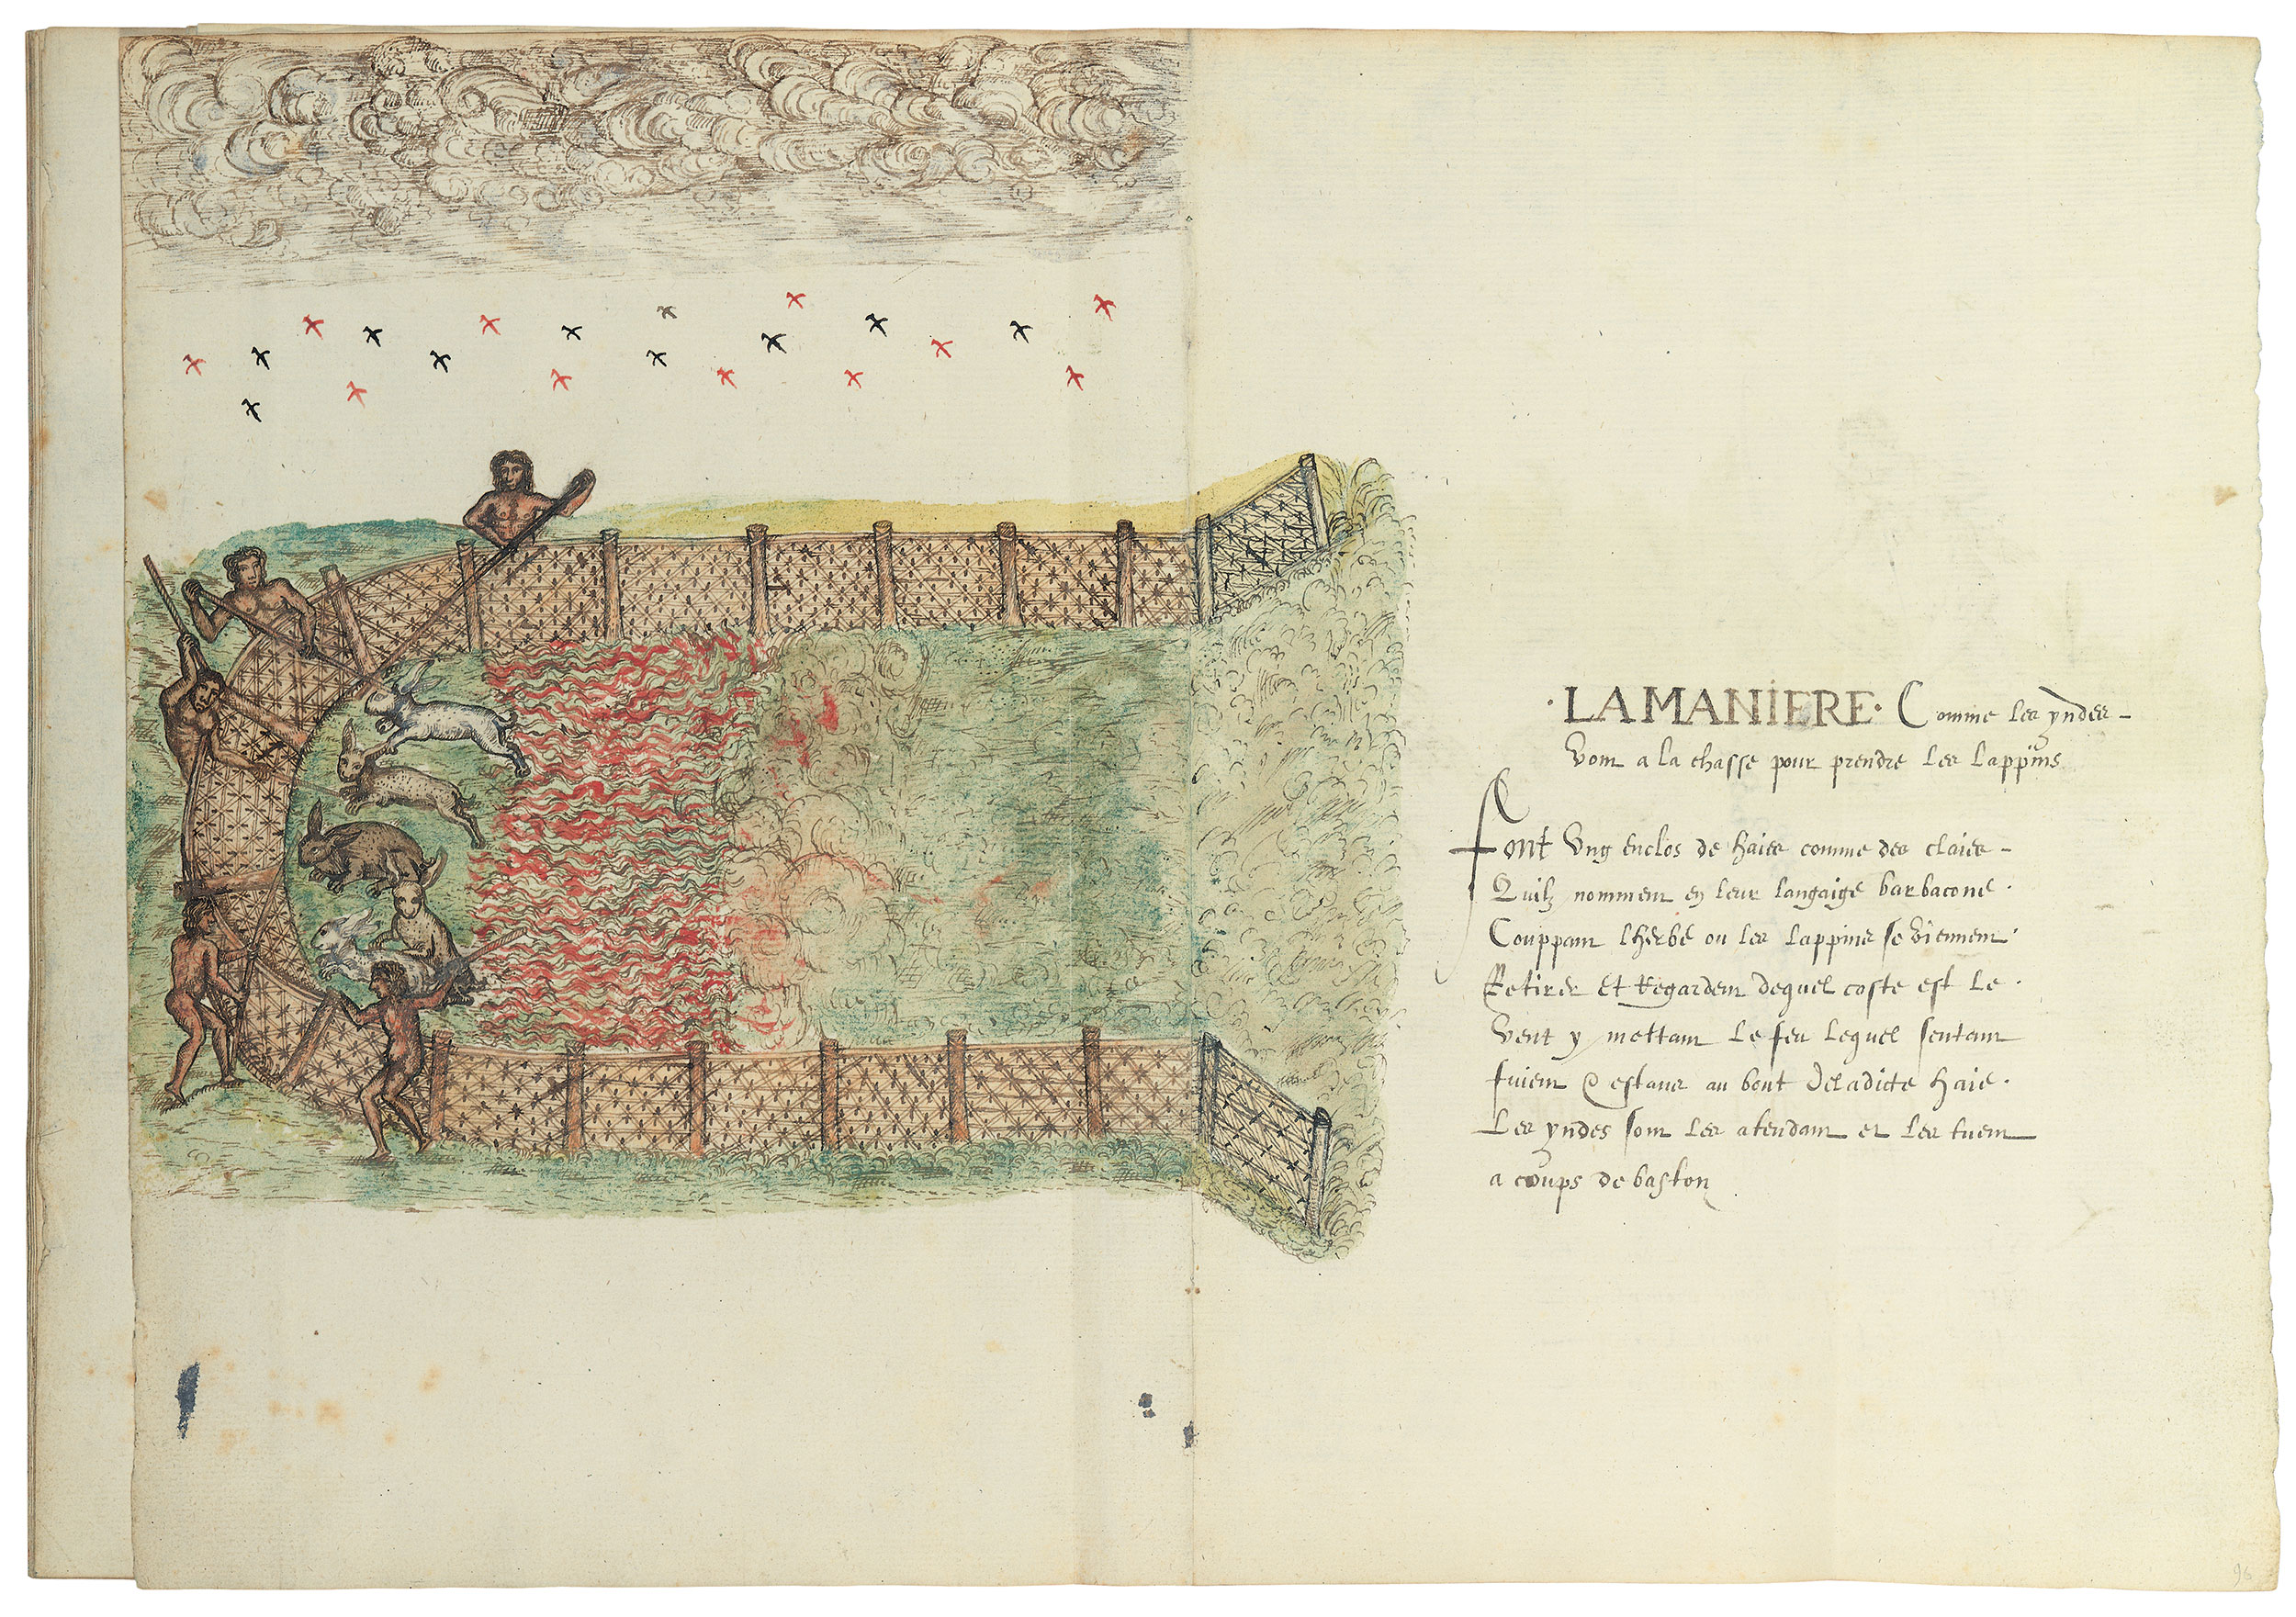 ·LAMANIERE· Comme les yndes
Vont a la chasse pour prendre les lappins
Font Vng enclos de haies comme des claies
Quilz nomment en leur langaige barbacone·
Couppant lherbe ou les lappins se viennent
Retirer Et Regardent dequel coste est le·
Vent y mettant le feu lequel sentant
fuient & estans au bout deladicte haie·
Les yndes sont les atendant et les tuent
a coups de baston
96